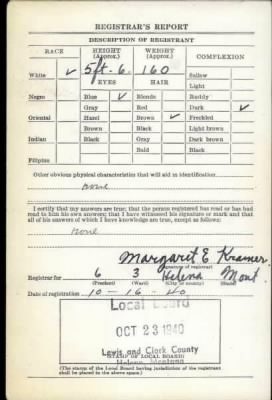 REGISTRAR'S REPORT
DESCRIPTION OF REGISTRANT
RACE HEIGHT (Approx.) WEIGHT (Approx.) COMPLEXION
White ✓ 5 ft. 6. 160 Sallow
EYES HAIR Light
Negro Blue ✓ Blonde Ruddy
Gray Red Dark ✓
Oriental Hazel Brown ✓ Freckled
Brown Black Light brown
Indian Black Gray Dark brown
Bald Black
Filipino
Other obvious physical characteristics that will aid in identification
None
I certify that my answers are true; that the person registered has read or has had
read to him his own answers; that I have witnessed his signature or mark and that
all of his answers of which I have knowledge are true, except as follows:
None
Margaret E Kramer
(Signature of registrar)
Registrar for 6 3 Helena Mont.
(Precinct) (Ward) (City or county) (State)
Date of registration 10-16-40
Local Board
OCT 23 1940
Lewis and Clark County
(STAMP OF LOCAL BOARD)
Helena, Montana
(The stamp of the Local Board having jurisdiction of the registrant
shall be placed in the above space.)